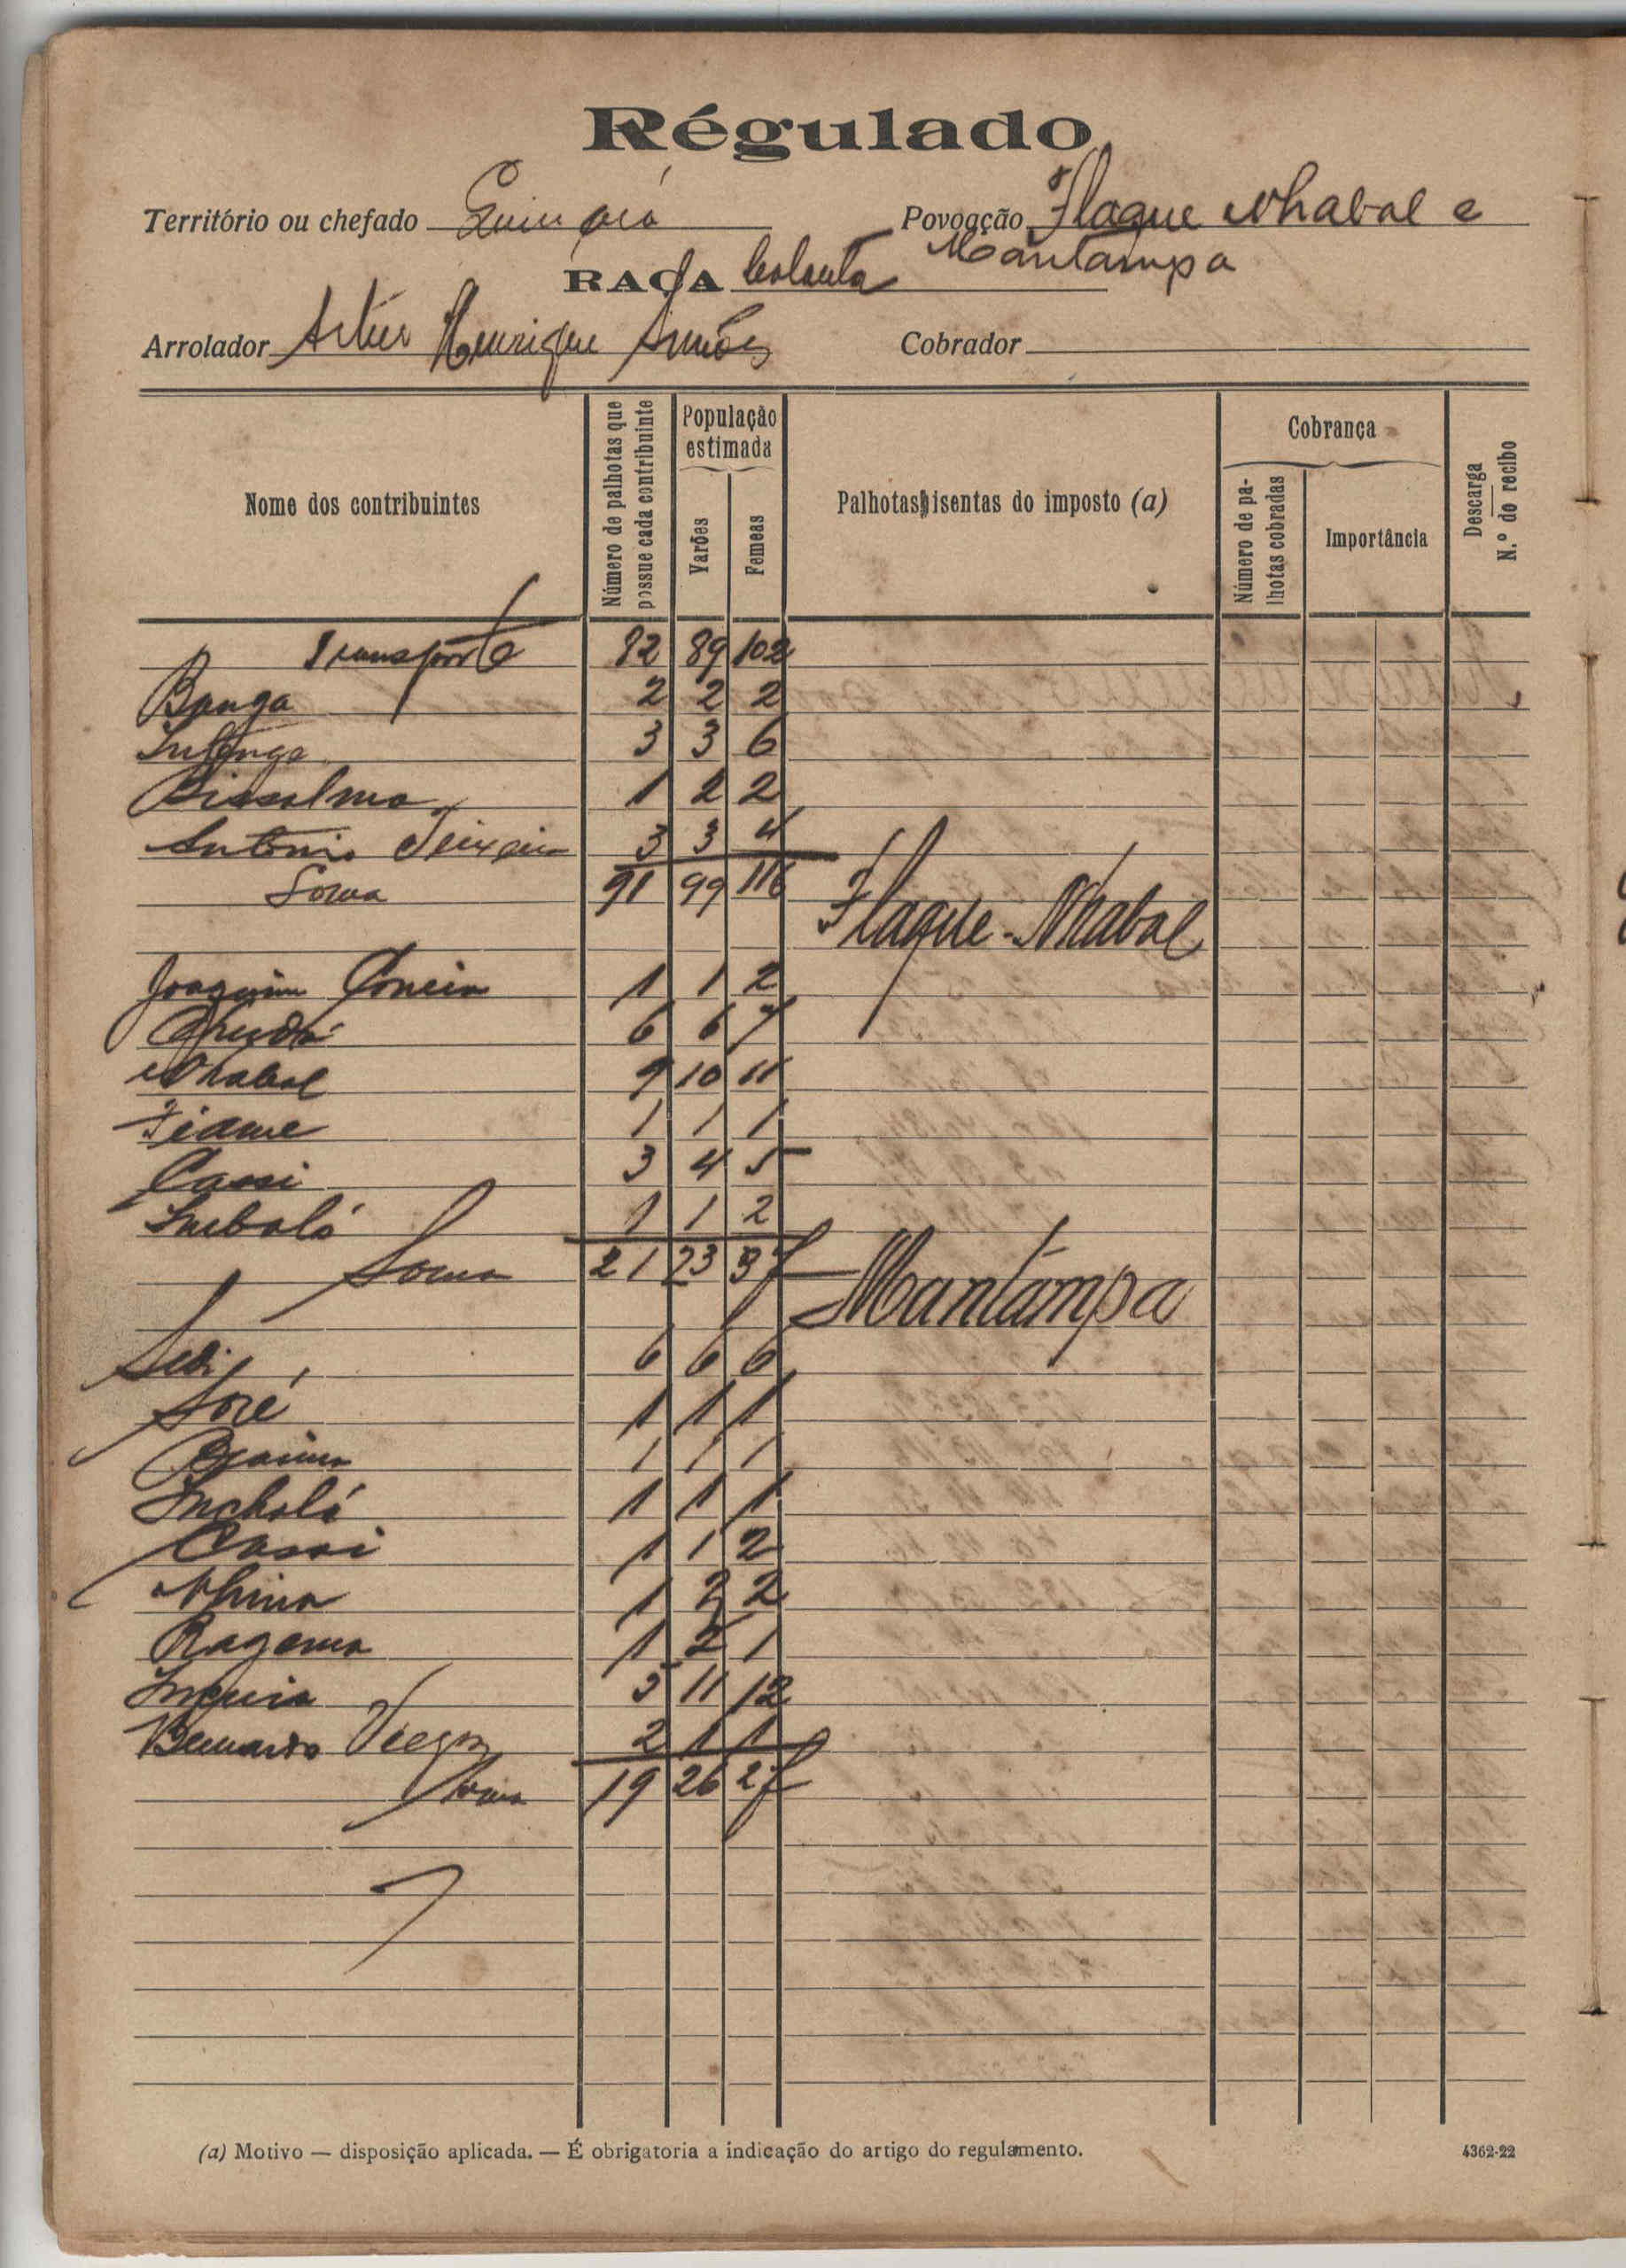 Régulado
Território ou chefado Quinará Povoação Flaque Nhabal e
RAÇA Balanta Mantampa
Arrolador Artur Henrique Simões Cobrador
Nome dos contribuintes
Número de palhotas que possue cada contribuinte
População estimada
Varões
Femeas
Palhotas isentas do imposto (a)
Cobrança
Número de palhotas cobradas
Importância
Descarga
N.º do recibo
Transporte 82 89 102
Banga 2 2 2
3 3 6
Bissalma 1 2 2
Antonio Teixeira 3 3 4
Soma 91 99 116
Flaque-Nhabal
Joaquim Correia 1 1 2
6 6 7
Nhabal 9 10 11
Fidame 1 1 1
Cassi 3 4 5
Imbaló 1 1 2
Soma 21 23 37
Mantampa
Sedi 6 6 6
Soré 1 1 1
1 1 1
Incholá 1 1 1
Cassi 1 1 2
Nhina 1 2 2
Ragema 1 2 1
5 11 12
Bernardo Viegas 2 1 1
Soma 19 26 27
(a) Motivo — disposição aplicada. — É obrigatoria a indicação do artigo do regulamento.
4362-22